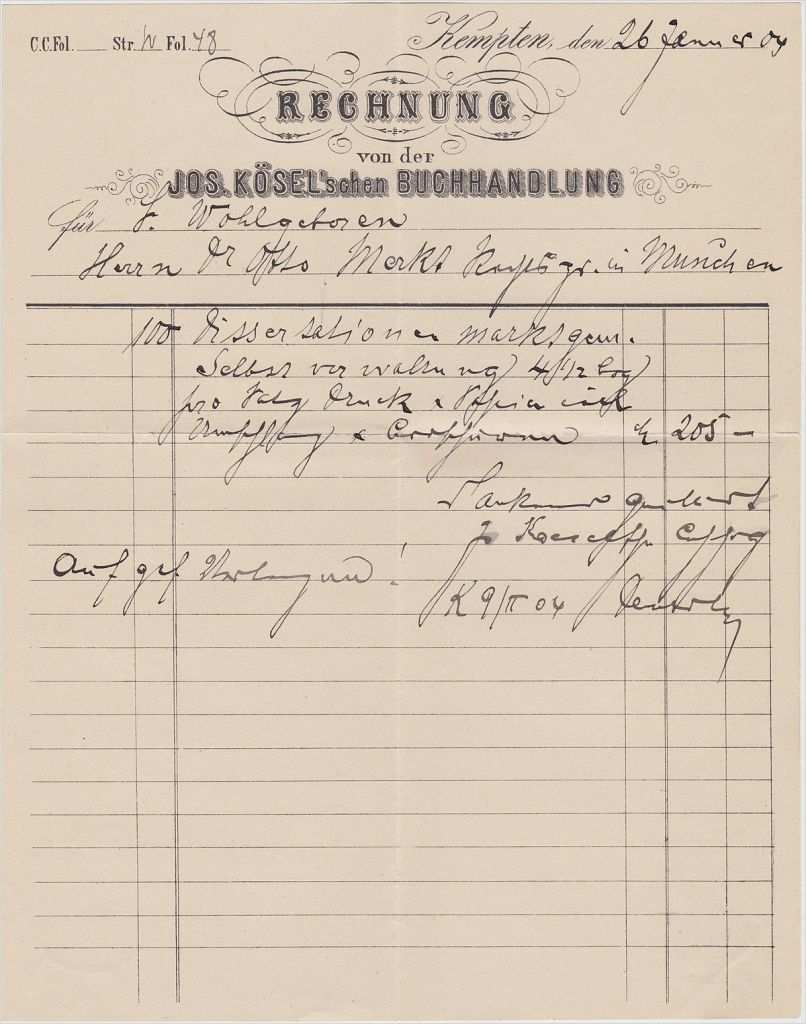 C.C.Fol. Str. IV Fol. 48
Kempten, den 26 Januer 04
RECHNUNG
von der
JOS. KÖSEL'schen BUCHHANDLUNG
für Sr. Wohlgeboren
Herrn Dr Otto Merkt in Munchen
100 Dissertationen marktgem.
Selbstverwaltung 4 1/2 Bog
pro Satz Druck & Papier incl
Umschlag & Broschieren M 205 –
Dankend quittiert
Jos
Auf gef Verlangen!
K 9/II 04